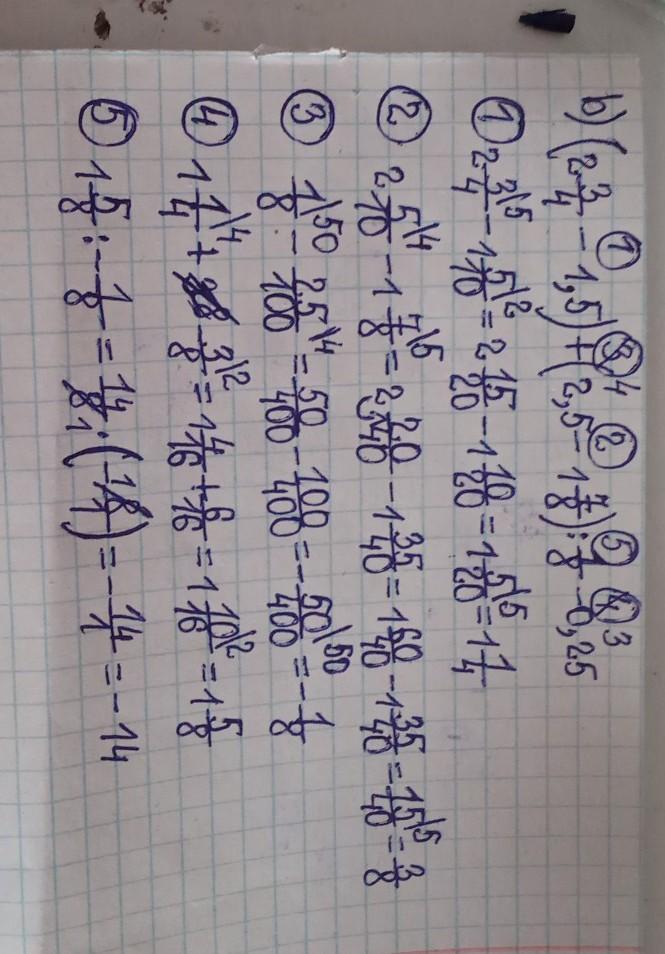 b) (2 3/4 - 1,5) + (2,5 - 1 7/8) : 1/8 - 0,25
① 4 ② ⑤ 3
① 2 3/4\5 - 1 5/10\2 = 2 15/20 - 1 10/20 = 1 5/20\5 = 1 1/4
② 2 5/10\4 - 1 7/8\5 = 2 20/40 - 1 35/40 = 1 60/40 - 1 35/40 = 15/40\5 = 3/8
③ 1/8\50 - 25/100\4 = 50/400 - 100/400 = - 50/400\50 = - 1/8
④ 1 1/4\4 + 3/8\2 = 1 4/16 + 6/16 = 1 10/16\2 = 1 5/8
⑤ 1 5/8 : - 1/8 = 14/8 · (- 8/1) = - 14/1 = - 14